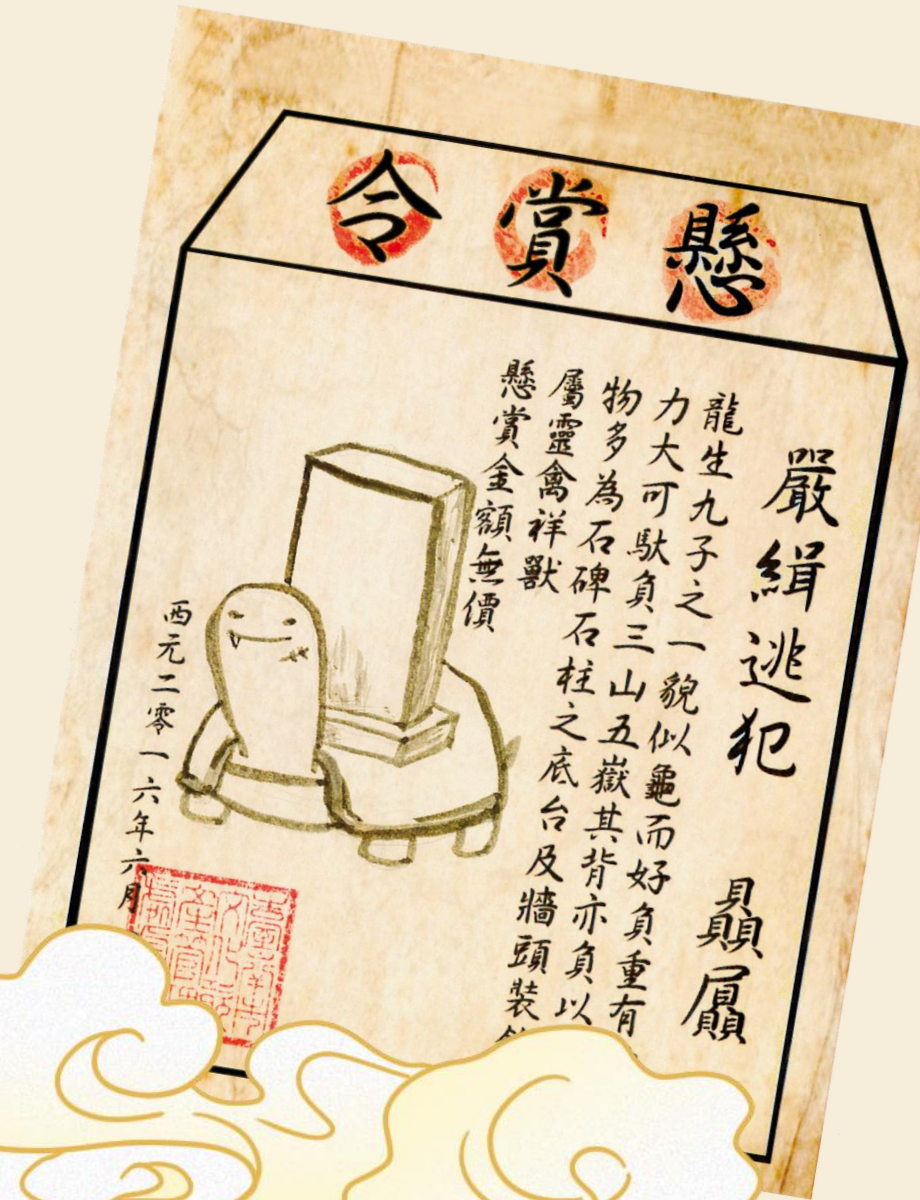 懸賞令
嚴緝逃犯 贔屭
龍生九子之一貌似龜而好負重有
力大可馱負三山五嶽其背亦負以
物多為石碑石柱之底台及牆頭裝
屬靈禽祥獸
懸賞金額無價
西元二零一六年六月